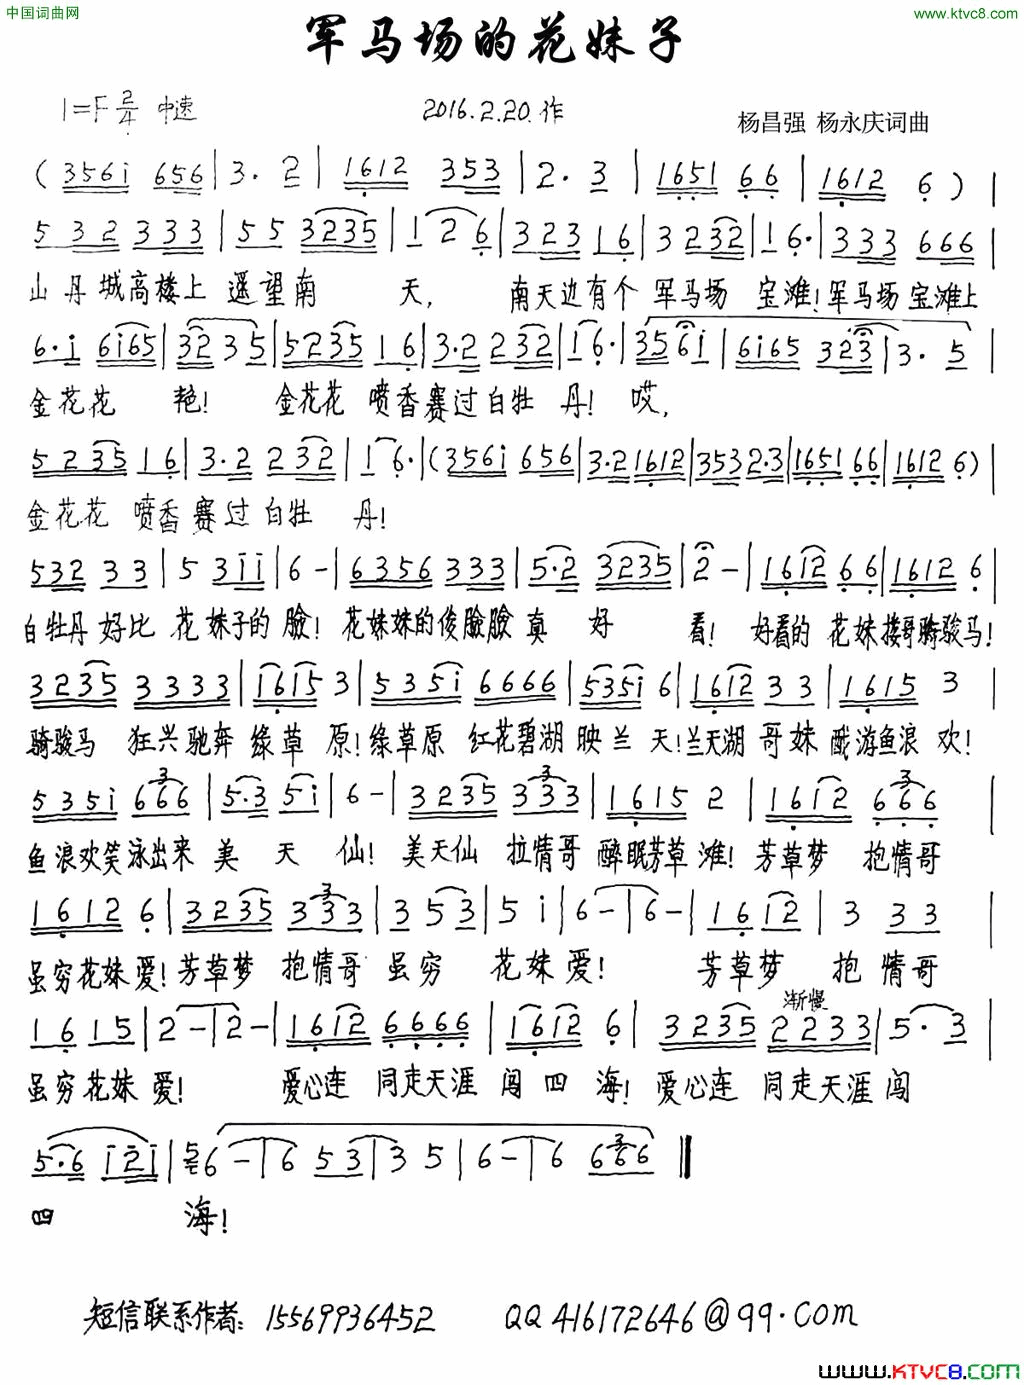 中国词曲网 www.ktvc8.com
军马场的花妹子
1=F 2/4 中速 2016.2.20.作 杨昌强 杨永庆词曲
(3561 656|3. 2|1612 353|2. 3|1651 66|1612 6)|
532 333|55 3235|1 2 6|323 16|3 232|1 6.|333 666|
山丹城高楼上 遥望南 天, 南天边有个 军马场 宝滩!军马场宝滩上
6.1 6165|32 35|5235 16|3.2 232|1 6.|35 61|6165 323|3. 5|
金花花 艳! 金花花 喷香赛过白牡 丹! 哎,
5235 16|3.2 232|1 6.|(3561 656|3.21612|3532.3|165166|1612 6)|
金花花 喷香赛过白牡 丹!
532 33|5 311|6-|6356 333|5.2 3235|2-|1612 66|1612 6|
白牡丹好比 花妹子的 脸! 花妹妹的俊脸脸真 好 看! 好看的 花妹搂哥骑骏马!
3235 3333|1615 3|5351 6666|5351 6|1612 33|1615 3|
骑骏马 狂兴驰奔 绿草 原!绿草原 红花碧湖映兰 天!兰天湖 哥妹 戏游鱼浪 欢!
5351 666|5.3 51|6-|3235 333|1615 2|1612 666|
鱼浪欢笑泳出来 美 天 仙! 美天仙 拉情哥 醉眠芳草 滩! 芳草梦 抱情哥
1612 6|3235 333|3 53|5 1|6-|6-|16 12|3 33|
虽穷花妹 爱!芳草梦 抱情哥 虽穷 花妹 爱! 芳草梦 抱 情哥
渐慢
16 15|2-|2-|1612 6666|1612 6|3235 2233|5. 3|
虽穷花妹 爱! 爱心连 同走天涯 闯 四 海! 爱心连 同走天涯 闯
5.6 121|6-|6 53|3 5|6-|6 666‖
四 海!
短信联系作者: 15569936452 QQ416172646@qq.com
www.KTVC8.COM